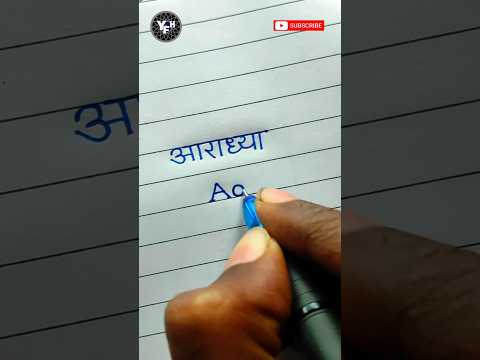 YFH
SUBSCRIBE
अ
आराध्या
Aa